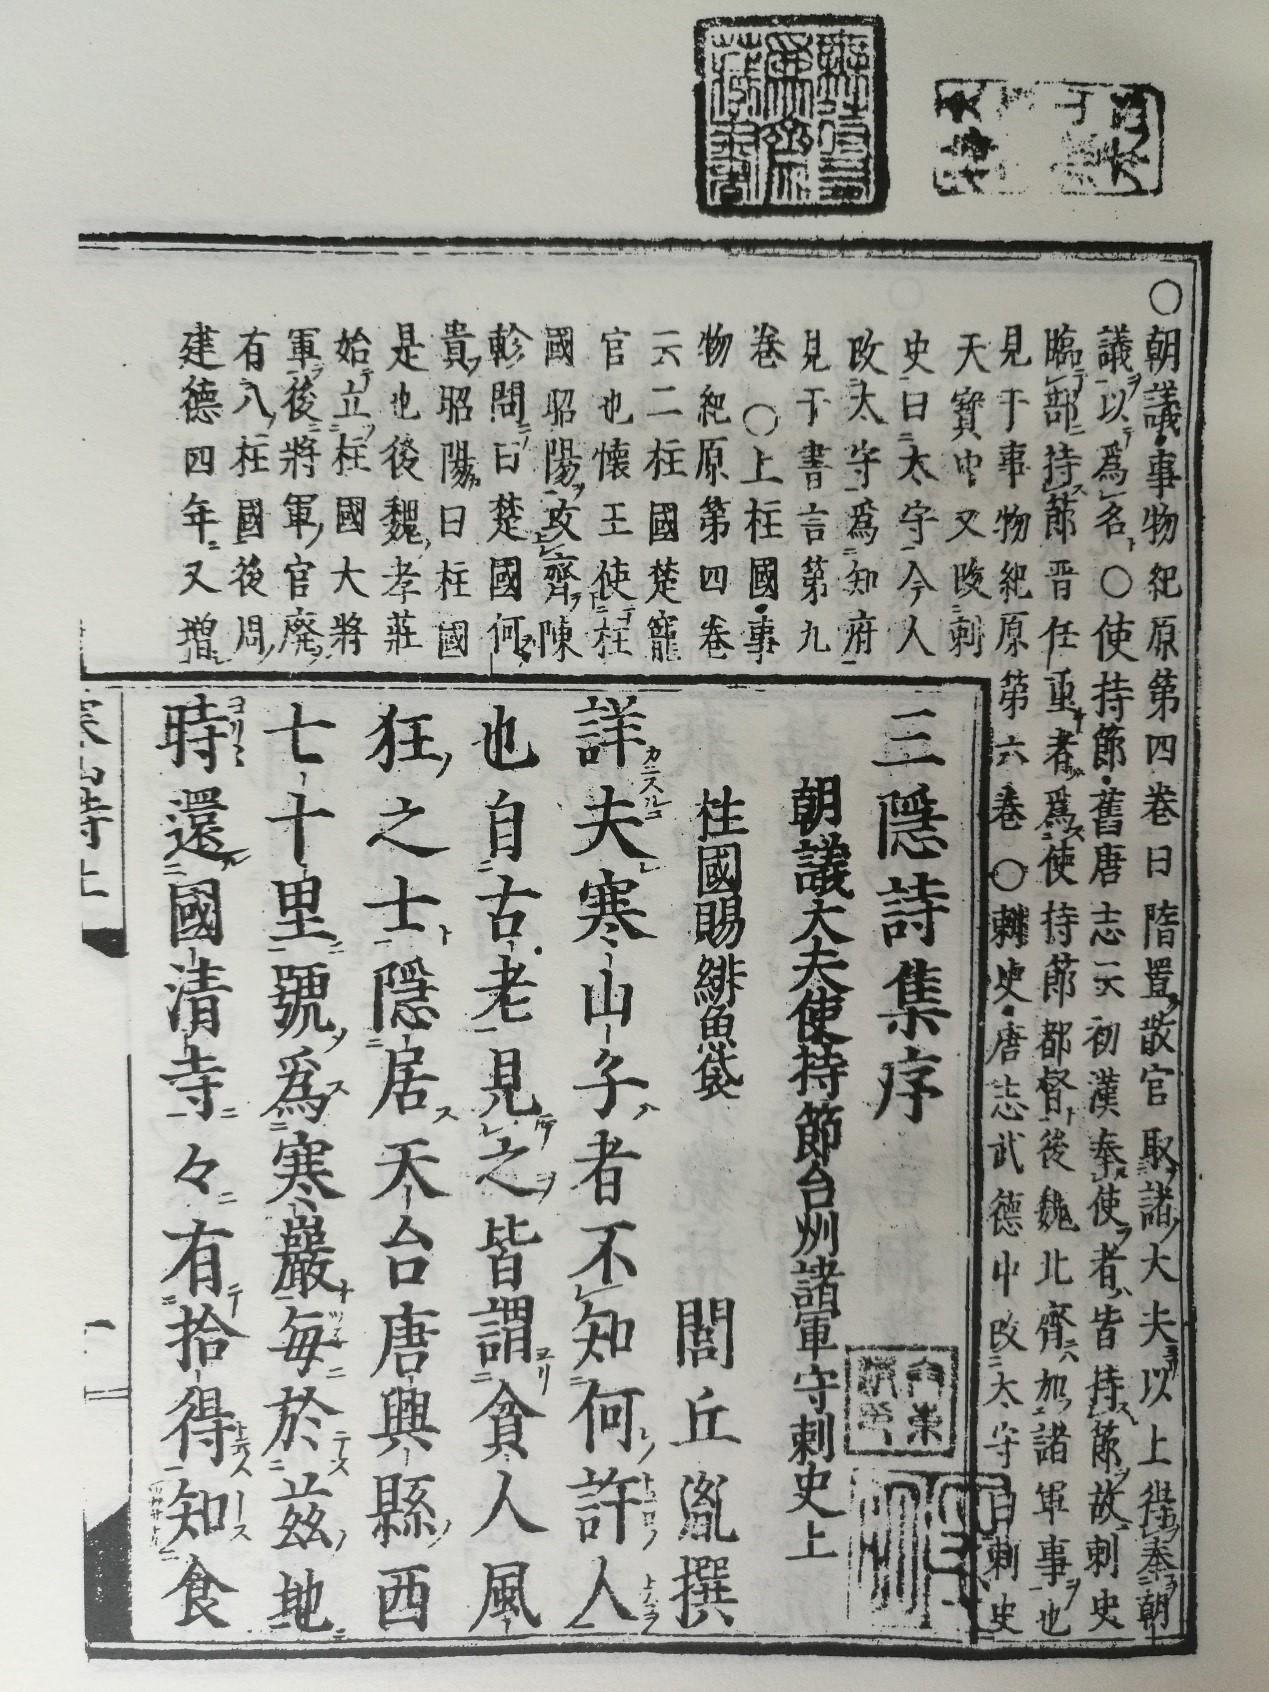 ○朝議事物紀原第四卷曰隋置散官取諸大夫以上得奉朝
議以爲名○使持節舊唐志云初漢奉使者皆持節故刺史
臨部持節晋任重者爲使持節都督後魏北齊加諸軍事也
見于事物紀原第六卷○刺史唐志武德中改太守曰刺史
天寶中又改刺
史曰太守今人
改太守爲知府
見于書言第九
卷○上柱國事
物紀原第四卷
云二柱國楚寵
官也懷王使柱
國昭陽攻齊陳
軫問曰楚國何
貴昭陽曰柱國
是也後魏孝莊
始立柱國大將
軍後將軍官廃
有八柱國後周
建德四年又增
三隱詩集序
朝議大夫使持節台州諸軍守刺史上
柱國賜緋魚袋
閭丘胤撰
詳夫寒山子者不知何許人
也自古老見之皆謂貧人風
狂之士隱居天台唐興縣西
七十里號爲寒巖每於茲地
時還國清寺々有拾得知食
寒山詩上